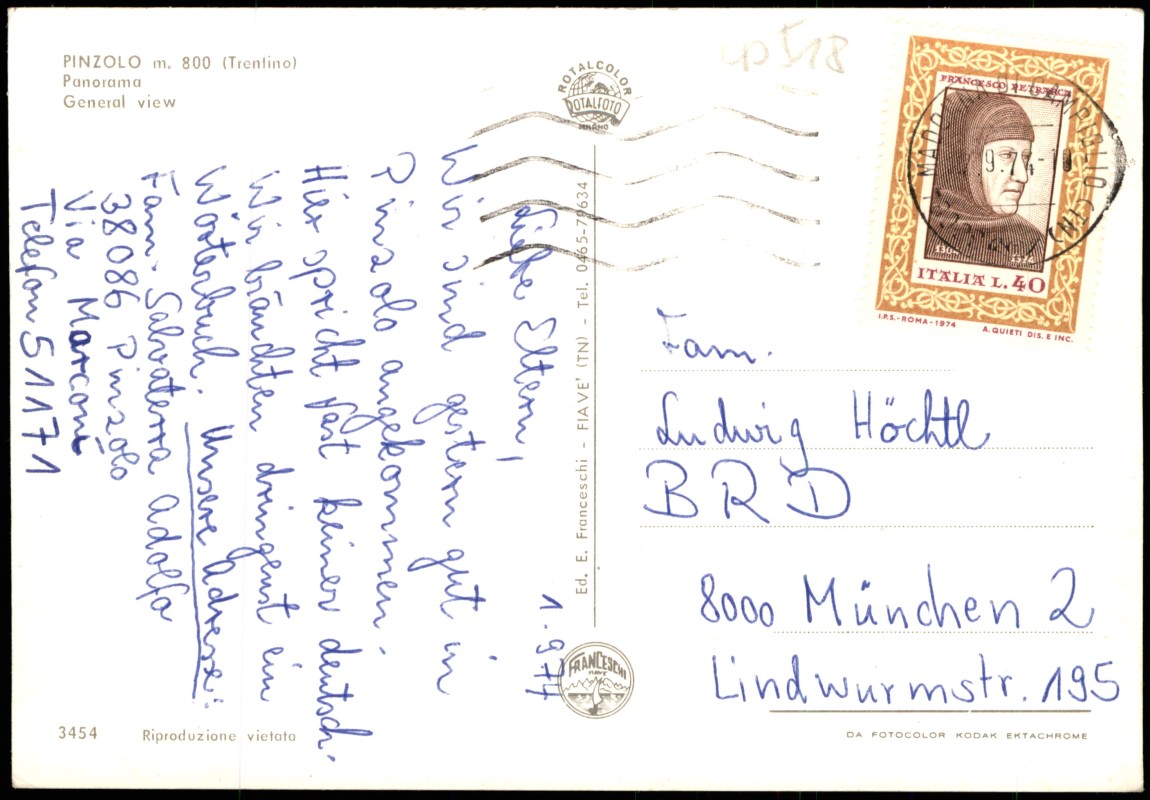 PINZOLO m. 800 (Trentino)
Panorama
General view
ROTALCOLOR
ROTALFOTO
MILANO
cp 518
FRANCESCO PETRARCA
1304 1374
ITALIA L. 40
I.P.S.-ROMA-1974 A. QUIETI DIS. E INC.
MADONNA DI CAMPIGLIO
9.74-18
1.9.74
Liebe Eltern,
Wir sind gestern gut in
Pinzolo angekommen.
Hier spricht fast kliner deutsch.
Wir bräuchten dringenst ein
Wörterbuch. Unsere Adresse:
Fam. Salvaterra Adolfa
38086 Pinzolo
Via Marconi
Telefon 51171
Ed. E. Franceschi - FIAVE' (TN) - Tel. 0465-79634
Fam.
Ludwig Höchtl
BRD
8000 München 2
Lindwurmstr. 195
FRANCESCHI
FIAVE
3454 Riproduzione vietata
DA FOTOCOLOR KODAK EKTACHROME